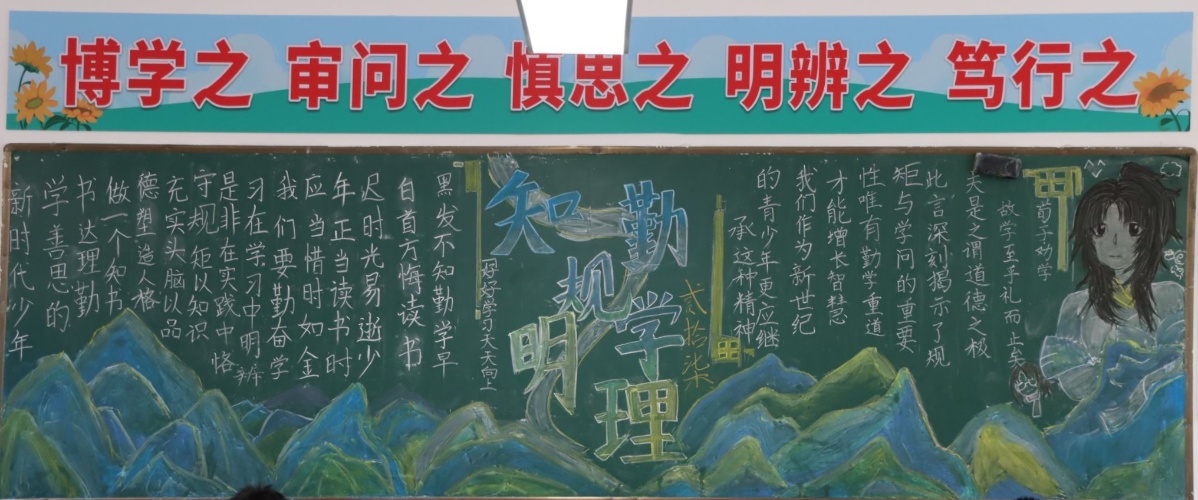 博学之 审问之 慎思之 明辨之 笃行之
荀子劝学
故学至乎礼而止矣
夫是之谓道德之极
此言深刻揭示了规
矩与学问的重要
性唯有勤学重道
才能增长智慧
我们作为新世纪
的青少年更应继
承这种精神
贰拾柒
勤学
知规明理
好好学习天天向上
黑发不知勤学早
白首方悔读书
迟时光易逝少
年正当读书时
应当惜时如金
我们要勤奋学
习在学习中明辨
是非在实践中恪
守规矩以知识
充实头脑以品
德塑造人格
做一个知书
书达理勤
学善思的
新时代少年